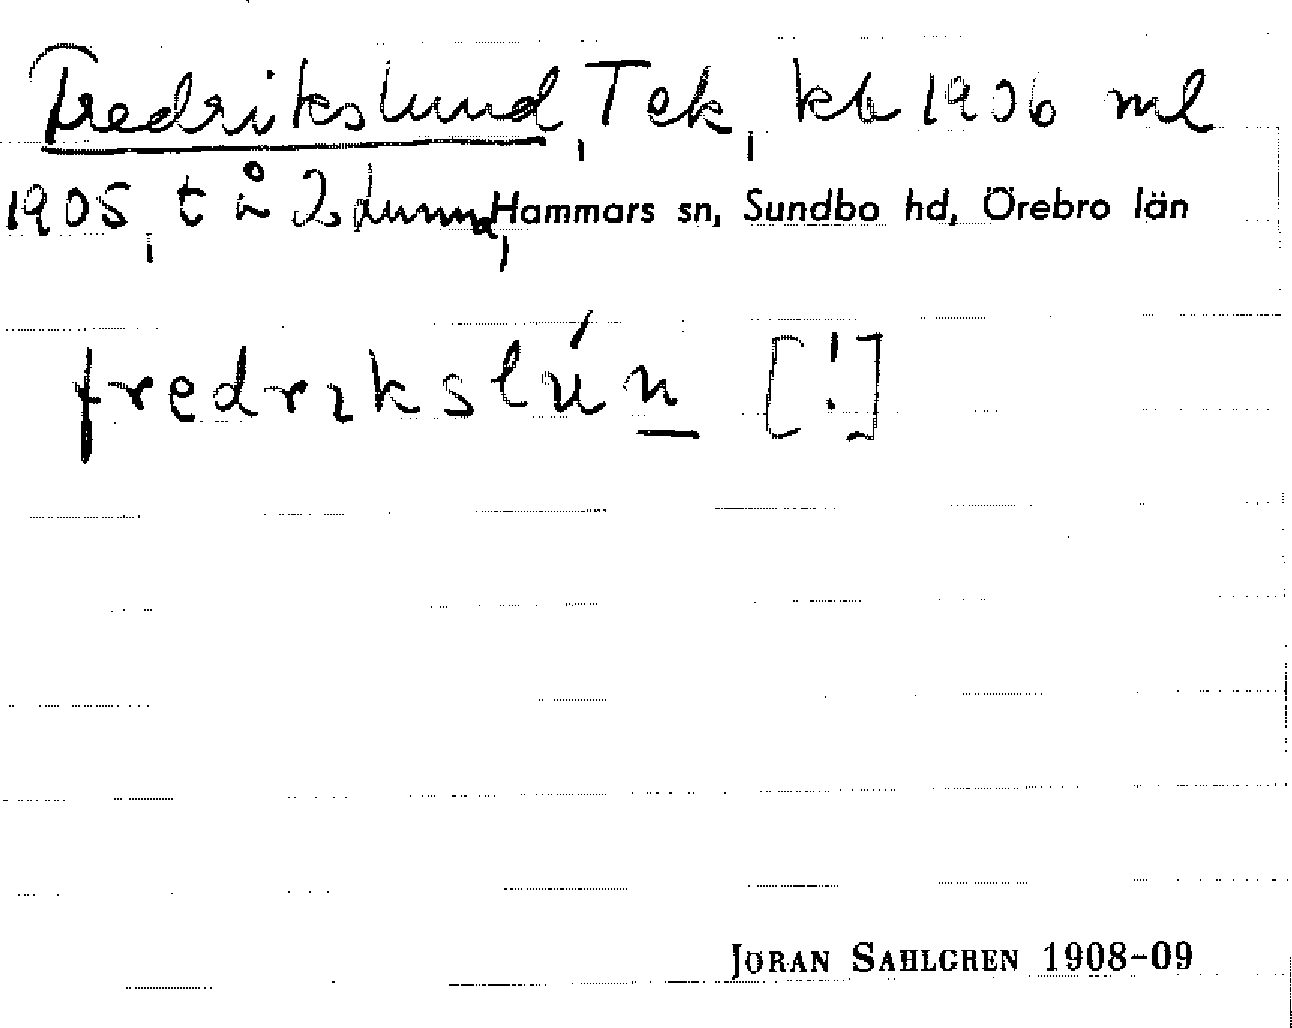 Fredrikslund, Tek, kb 1906 ml
1905, t å Hammars sn, Sundbo hd, Örebro län
fredrikslún [!]
JÖRAN SAHLGREN 1908-09